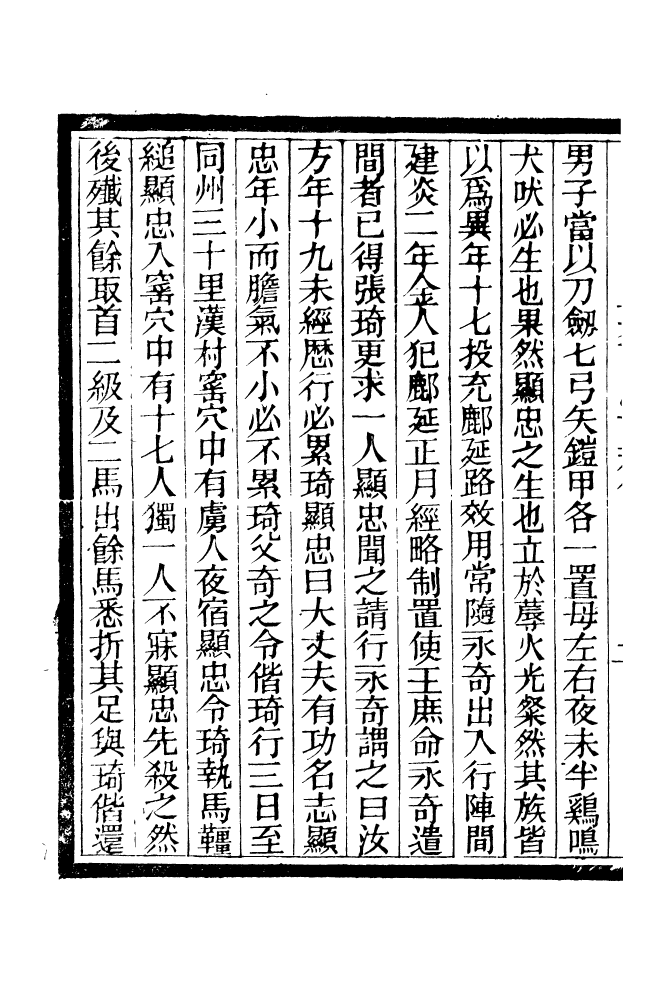 男子當以刀劒七弓矢鎧甲各一置母左右夜未半鷄鳴
犬吠必生也果然顯忠之生也立於蓐火光粲然其族皆
以爲異年十七投充鄜延路效用常隨永奇出入行陣間
建炎二年金人犯鄜延正月經略制置使王庶命永奇遣
間者已得張琦更求一人顯忠聞之請行永奇謂之曰汝
方年十九未經歷行必累琦顯忠曰大丈夫有功名志顯
忠年小而膽氣不小必不累琦父奇之令偕琦行三日至
同州三十里漢村窰穴中有虜人夜宿顯忠令琦執馬韁
縋顯忠入窰穴中有十七人獨一人不寐顯忠先殺之然
後殲其餘取首二級及二馬出餘馬悉折其足與琦偕還